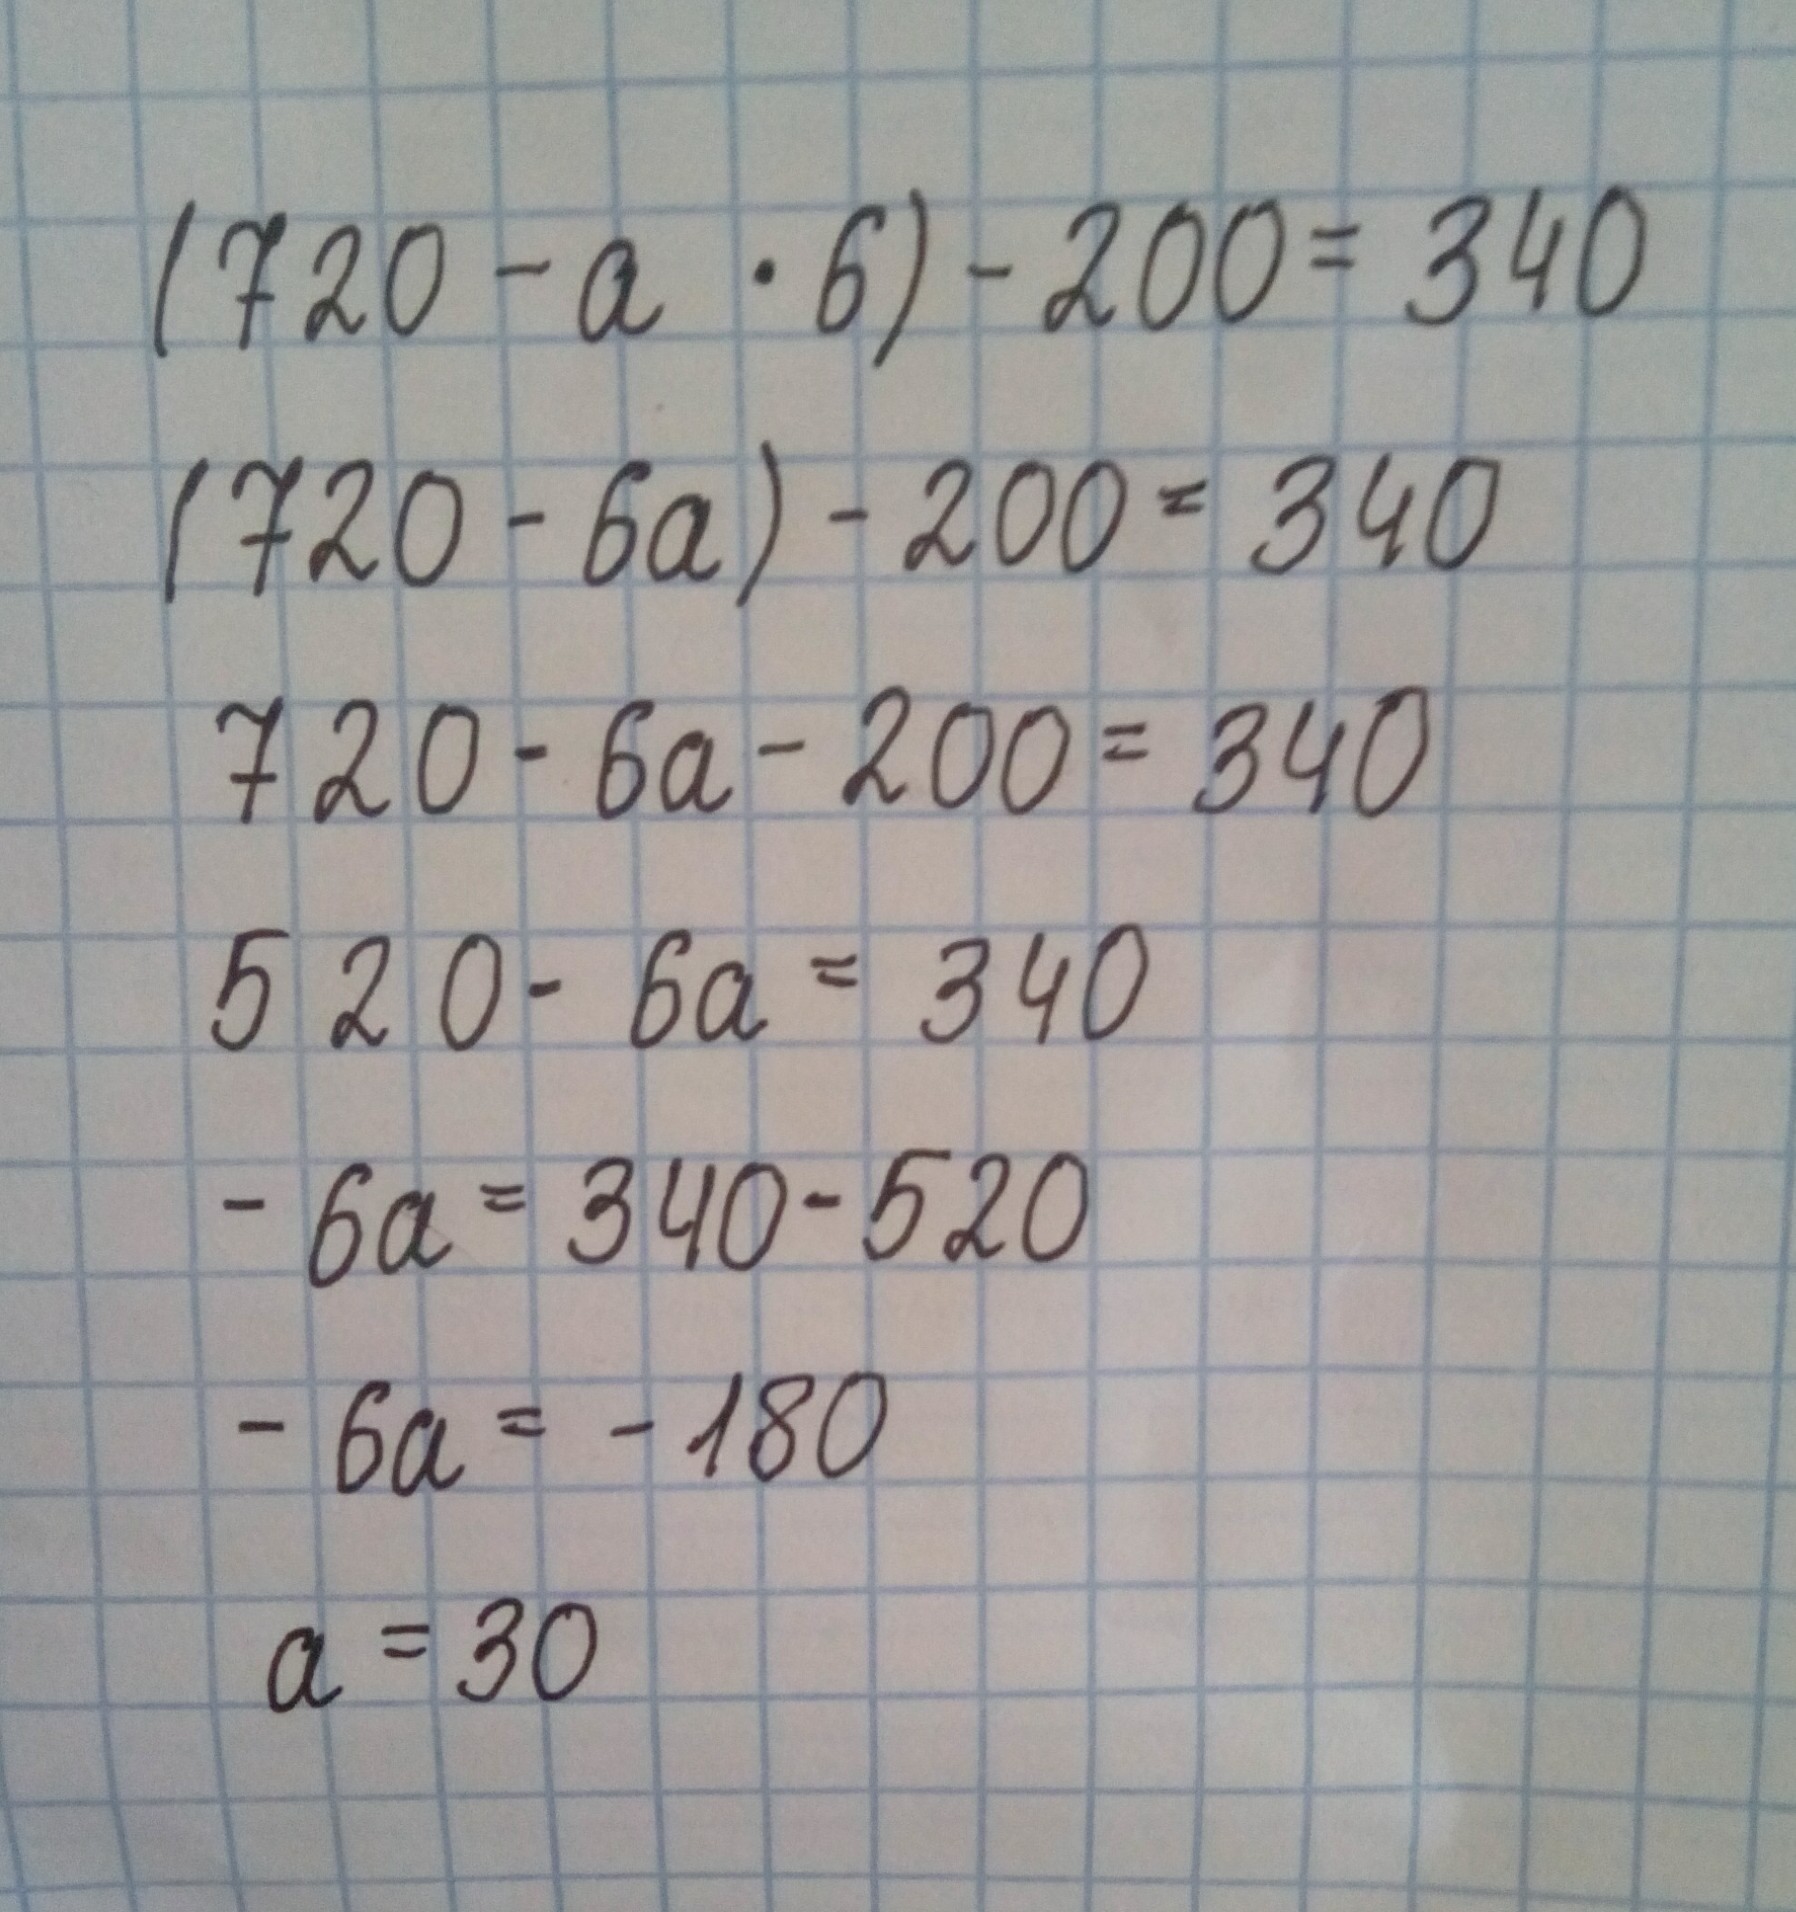 (720 - a · 6) - 200 = 340
(720 - 6a) - 200 = 340
720 - 6a - 200 = 340
520 - 6a = 340
- 6a = 340 - 520
- 6a = - 180
a = 30